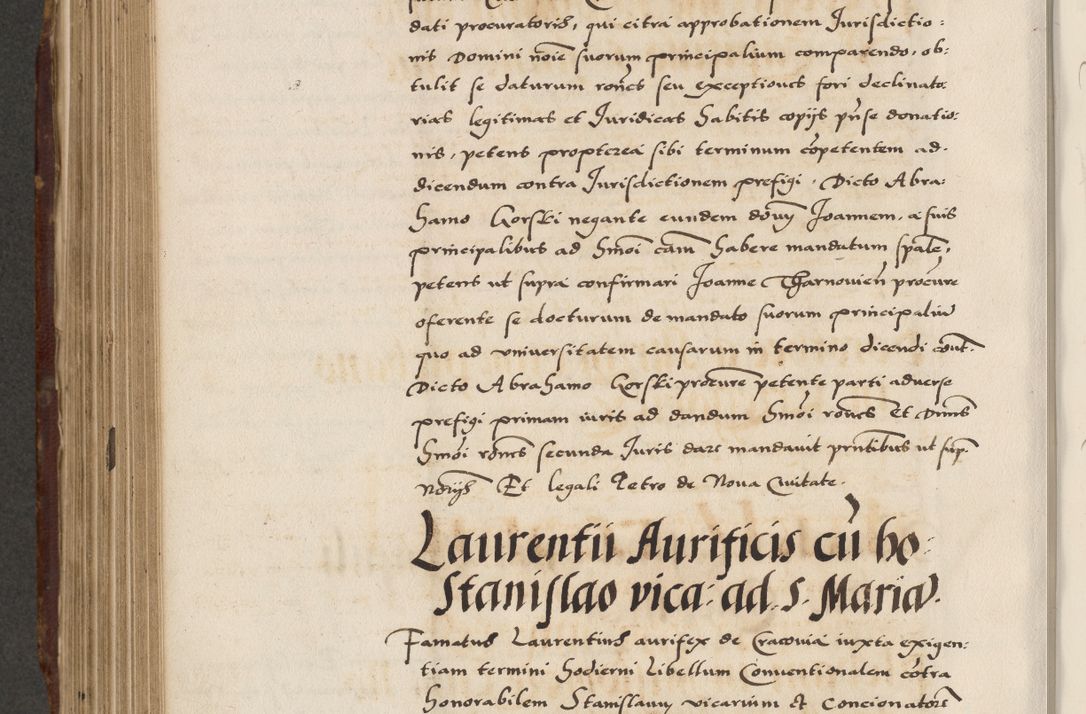 dati procuratoris, qui citra approbationem Jurisdictio:
nis Domini noĩe suorum principalium comparendo, ob:
tulit se daturum rones seu exceptiones fori declinato:
rias legitimas et Juridicas habitis copijs pñse donatio:
nis, petens propterea sibi terminum cõpetentem ad
dicendum contra Jurisdictionem prefigi. Dicto Abra:
hamo Gorski negante eundem Joannem, a suis
principalibus ad hmõi cãm habere mandatum spãle,
petens ut supra confirmari Joanne Tharnovieñ procure
oferente se docturum de mandato suorum principaliũ
quo ad universitatem causarum in termino dicendi cont.
Dicto Abrahamo Gorski procure petente parti adverse
prefigi primam iuris ad dandum hmõi rones Et Dnus
hmõi rones secunda Juris dare mandavit pntibus ut sup.
Ndrijs Et legali Petro de Nova Civitate.
Laurentii Aurificis cũ ho:
Stanislao vica: ad. S. Mariã.
Famatus Laurentius aurifex de Cracovia iuxta exigen:
tiam termini hodierni Libellum Conventionalem cõtra
honorabilem Stanislaum vicarium et Concionatorẽ